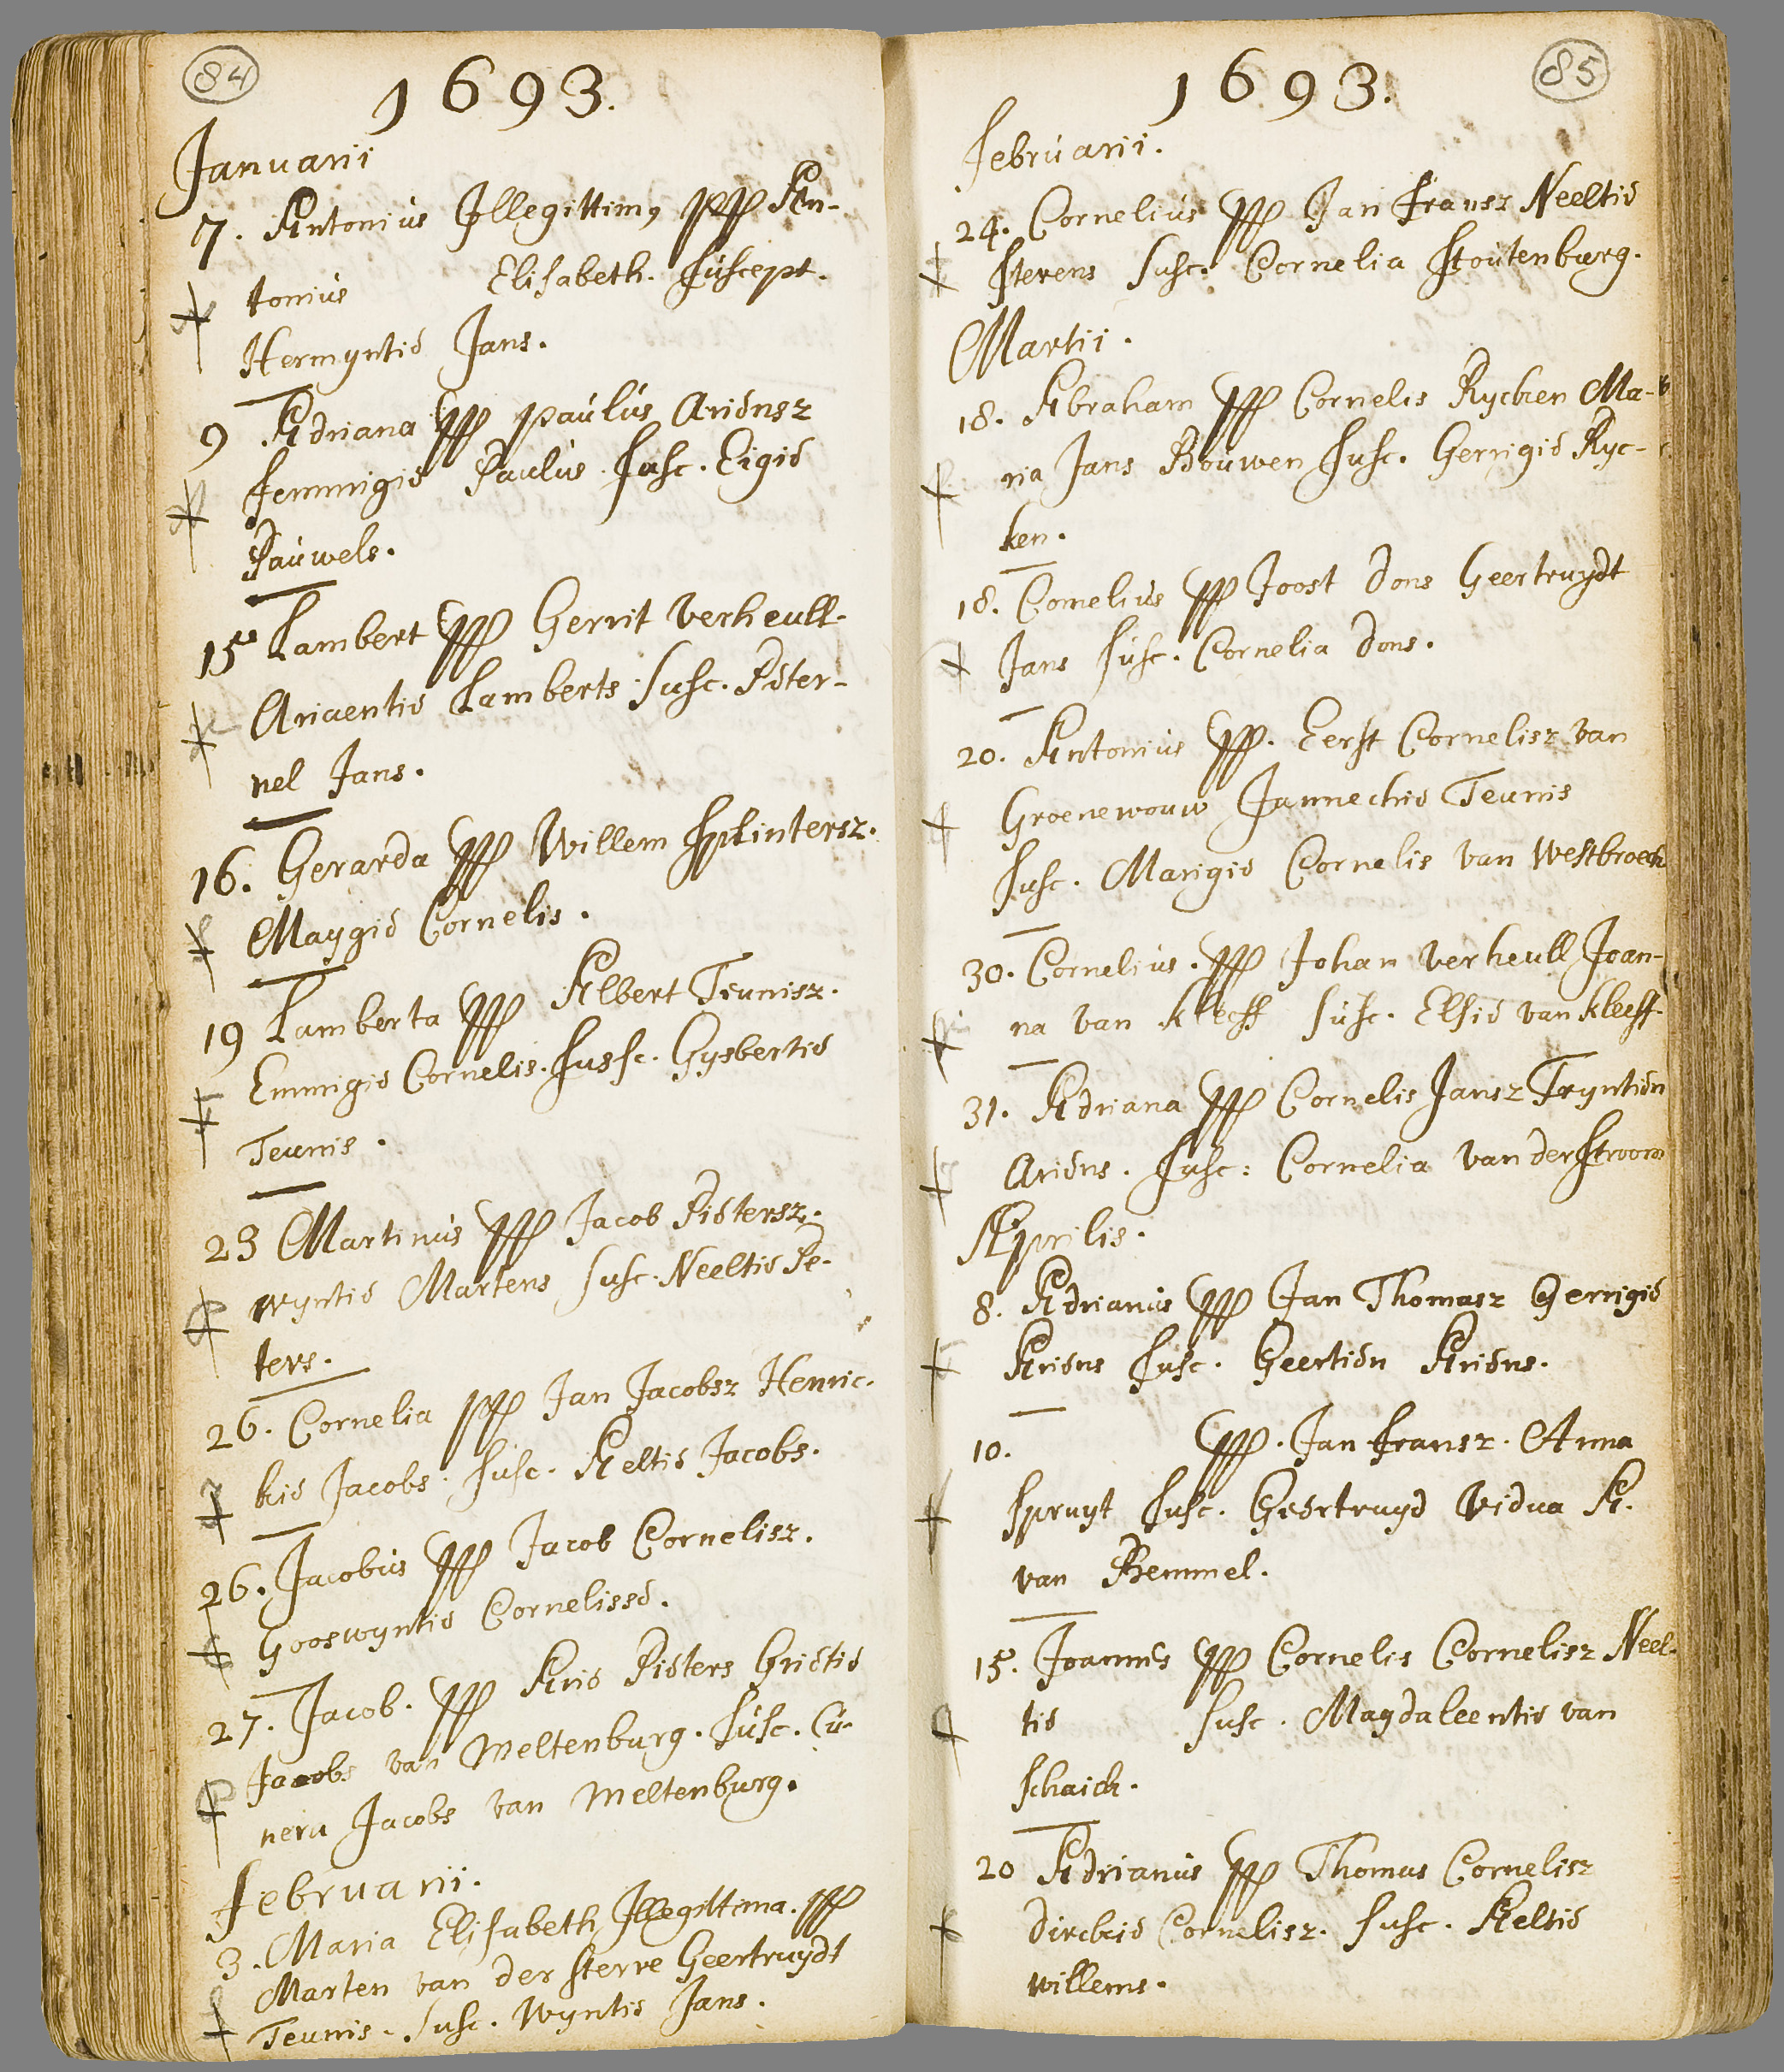 84
1693.
Januarii
7. Antonius Illegittim9 ppp An-
tonius Elisabeth. suscept.
Hermyntie Jans.
9 Adriana ppp paulus Ariensz
femmigie Paulus. susc. Eigie
Pauwels.
15 Lambert ppp Gerrit verheull.
Ariaentie Lamberts. susc. Peter-
nel Jans.
16. Gerarda ppp Willem splintersz.
Maygie Cornelis.
19 Lamberta ppp Albert Teunisz.
Emmigie Cornelis. sussc. Gysbertie
Teunis.
23 Martinus ppp Jacob Pietersz.
wyntie Martens susc. Neeltie Pe-
ters.
26. Cornelia ppp Jan Jacobsz Henric-
kie Jacobs. susc. Aeltie Jacobs.
26. Jacobus ppp Jacob Cornelisz.
Gooswyntie Cornelisse.
27. Jacob. ppp Arie Pieters Grietie
Jacobs van Meltenburg. susc. Cu-
nera Jacobs van Meltenburg.
februarii.
3. Maria Elisabeth Illegittima. ppp
Marten van der sterre Geertruydt
Teunis. susc. Wyntie Jans.
85
1693.
februarii.
24. Cornelius ppp Jan fransz Neeltie
stevens susc. Cornelia stoutenburg.
Martii.
18. Abraham ppp Cornelis Rycken Ma-
ria Jans Bouwen susc. Gerrigie Ryc-
ken.
18. Cornelius ppp Joost dons Geertruydt
Jans susc. Cornelia dons.
20. Antonius ppp. Eerst Cornelisz van
Groenewouw Jannechie Teunis
susc. Marigie Cornelis van westbroeck
30. Cornelius. ppp Johan verheull Joan-
na van kleeff susc. Elsie van kleeff.
31. Adriana ppp Cornelis Jansz Tryntien
Ariens. susc: Cornelia van der stroom
Aprilis.
8. Adrianus ppp Jan Thomasz Gerrigie
Ariens susc. Geertien Ariens.
10. ppp. Jan fransz. Anna
spruyt susc. Geertruyd vidua A.
van Bemmel.
15. Joannes ppp Cornelis Cornelisz Neel-
tie susc. Magdaleentie van
schaick.
20 Adrianus ppp Thomas Cornelisz
dirckie Cornelisz. susc. Aeltie
willems.